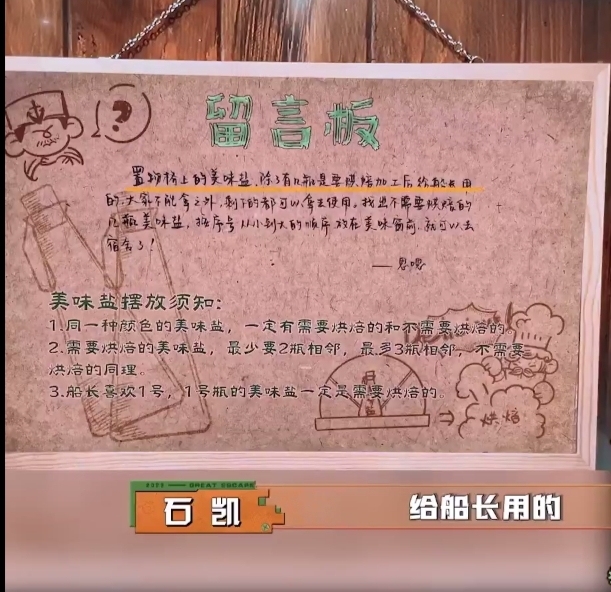 ?
留言板
置物柜上的美味盐,除了有几瓶是要烘焙加工后给船长用
的,大家不能拿之外,剩下的都可以拿去使用。找出不需要烘焙的
几瓶美味盐,按序号从小到大的顺序放在美味窗前,就可以去
宿舍了!
——恩嗯
美味盐摆放须知:
1.同一种颜色的美味盐,一定有需要烘焙的和不需要烘焙的。
2.需要烘焙的美味盐,最少要2瓶相邻,最多3瓶相邻,不需要
烘焙的同理。
3.船长喜欢1号,1号瓶的美味盐一定是需要烘焙的。
烘焙
GREAT ESCAPE
石凯
给船长用的